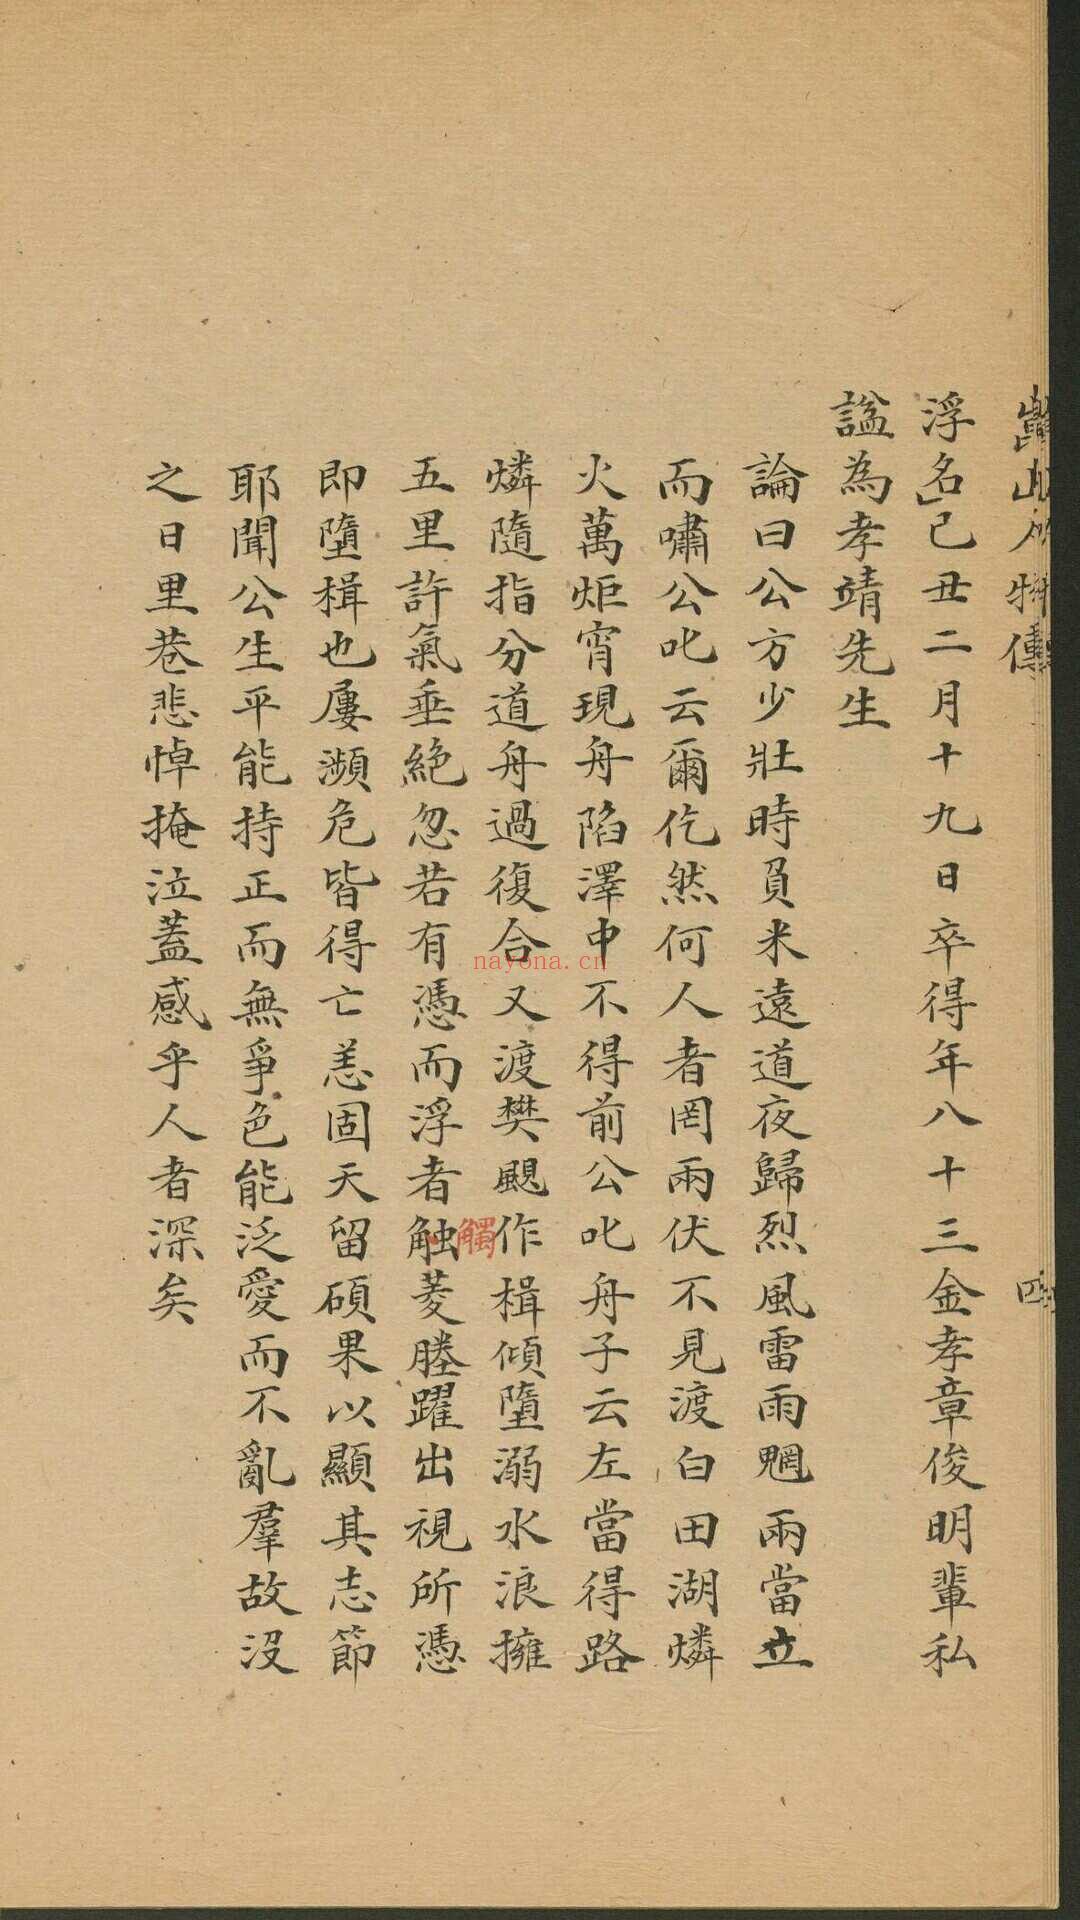 浮名已丑二月十九日卒得年八十三金孝章俊明輩私
諡為孝靖先生
論曰公方少壯時負米遠道夜歸烈風雷雨魍兩當立
而嘯公叱云爾仡然何人者罔兩伏不見渡白田湖燐
火萬炬宵現舟陷澤中不得前公叱舟子云左當得路
燐隨指分道舟過復合又渡樊颶作楫傾墮溺水浪擁
觸
五里許氣垂絶忽若有憑而浮者触菱塍躍出視所憑
即墮楫也屢瀕危皆得亡恙固天留碩果以顯其志節
耶聞公生平能持正而無爭色能泛愛而不亂羣故沒
之日里巷悲悼掩泣蓋感乎人者深矣
nayona.cn